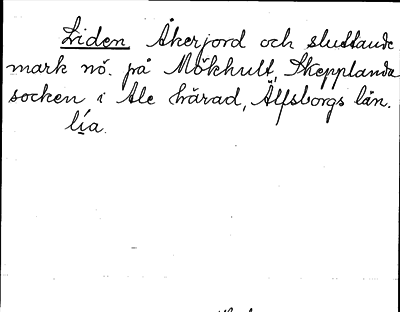 Liden Åkerjord och sluttande
mark nö. på Mökhult, Skepplanda
socken i Ale härad, Älfsborgs län.
lía.